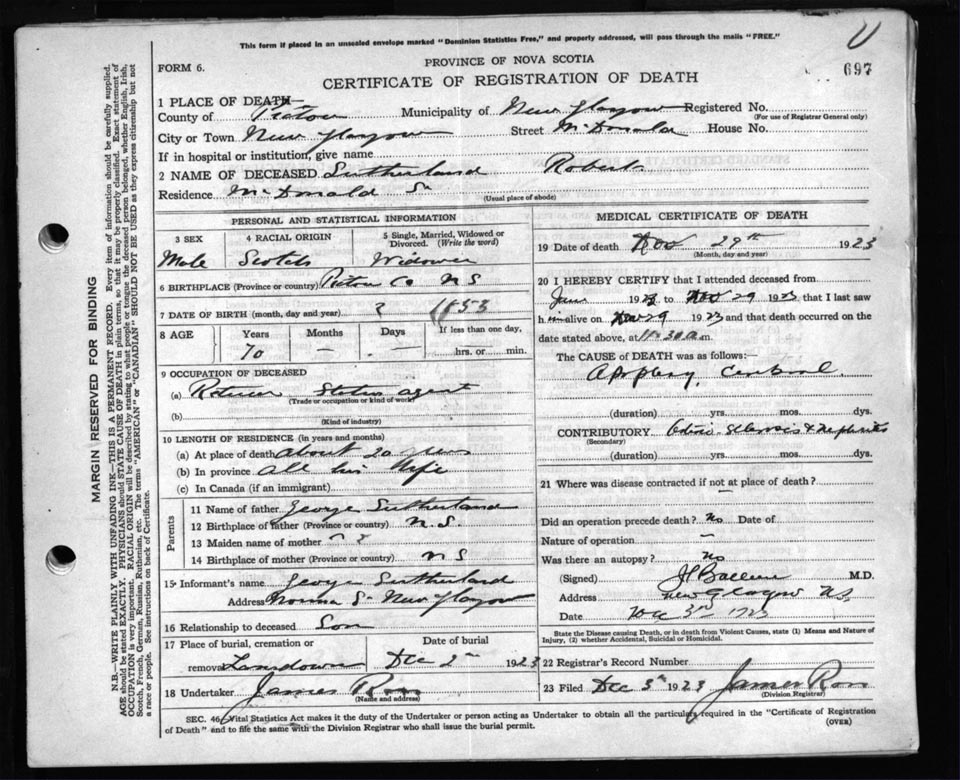 This form if placed in an unsealed envelope marked "Dominion Statistics Free," and property addressed, will pass through the mails "FREE."
U
FORM 6.
PROVINCE OF NOVA SCOTIA
697
CERTIFICATE OF REGISTRATION OF DEATH
1 PLACE OF DEATH
County of Pictou Municipality of New Glasgow Registered No.
(For use of Registrar General only)
City or Town New Glasgow Street McDonald House No.
If in hospital or institution, give name
2 NAME OF DECEASED Sutherland Robert
Residence McDonald St
(Usual place of abode)
PERSONAL AND STATISTICAL INFORMATION
3 SEX 4 RACIAL ORIGIN 5 Single, Married, Widowed or Divorced. (Write the word)
Male Scotch Widower
6 BIRTHPLACE (Province or country) Pictou Co N S
7 DATE OF BIRTH (month, day and year) ? 1853
8 AGE Years Months Days If less than one day,
70 — — hrs. or min.
9 OCCUPATION OF DECEASED
(a) Station agent
(Trade or occupation or kind of work)
(b)
(Kind of industry)
10 LENGTH OF RESIDENCE (in years and months)
(a) At place of death about 20 years
(b) In province all his life
(c) In Canada (if an immigrant)
Parents
11 Name of father George Sutherland
12 Birthplace of father (Province or country) N.S.
13 Maiden name of mother ? ?
14 Birthplace of mother (Province or country) N S
15 Informant's name George Sutherland
Address Norman St New Glasgow
16 Relationship to deceased Son
17 Place of burial, cremation or Date of burial
removal Lansdowne Dec 2nd 1923
18 Undertaker James Ross
(Name and address)
MEDICAL CERTIFICATE OF DEATH
19 Date of death Nov 29th 1923
(Month, day and year)
20 I HEREBY CERTIFY that I attended deceased from
June 1923 to Nov 29 1923 that I last saw
him alive on Nov 29 1923 and that death occurred on the
date stated above, at 11.30 a m.
The CAUSE of DEATH was as follows:—
Apoplexy, Cerebral
(duration) yrs. mos. dys.
CONTRIBUTORY Sclerosis & Nephritis
(Secondary)
(duration) yrs. mos. dys.
21 Where was disease contracted if not at place of death?
Did an operation precede death? No Date of
Nature of operation —
Was there an autopsy? No
(Signed) M.D.
Address New Glasgow NS
Date Dec 3rd 1923
State the Disease causing Death, or in death from Violent Causes, state (1) Means and Nature of
Injury, (2) whether Accidental, Suicidal or Homicidal.
22 Registrar's Record Number
23 Filed Dec 3rd 1923 James Ross
(Division Registrar)
SEC. 46, Vital Statistics Act makes it the duty of the Undertaker or person acting as Undertaker to obtain all the particulars required in the "Certificate of Registration
of Death" and to file the same with the Division Registrar who shall issue the burial permit.
(OVER)
MARGIN RESERVED FOR BINDING
N.B.—WRITE PLAINLY WITH UNFADING INK—THIS IS A PERMANENT RECORD. Every item of information should be carefully supplied.
AGE should be stated EXACTLY. PHYSICIANS should STATE CAUSE OF DEATH in plain terms, so that it may be properly classified. Exact statement of
OCCUPATION is very important. RACIAL ORIGIN will be described by stating to what people or tongue the deceased person belonged, whether English, Irish,
Scotch, French, German, Russian, Ruthenian, etc. The terms "AMERICAN" or "CANADIAN" SHOULD NOT BE USED as they express citizenship but not
a race or people. See instructions on back of Certificate.